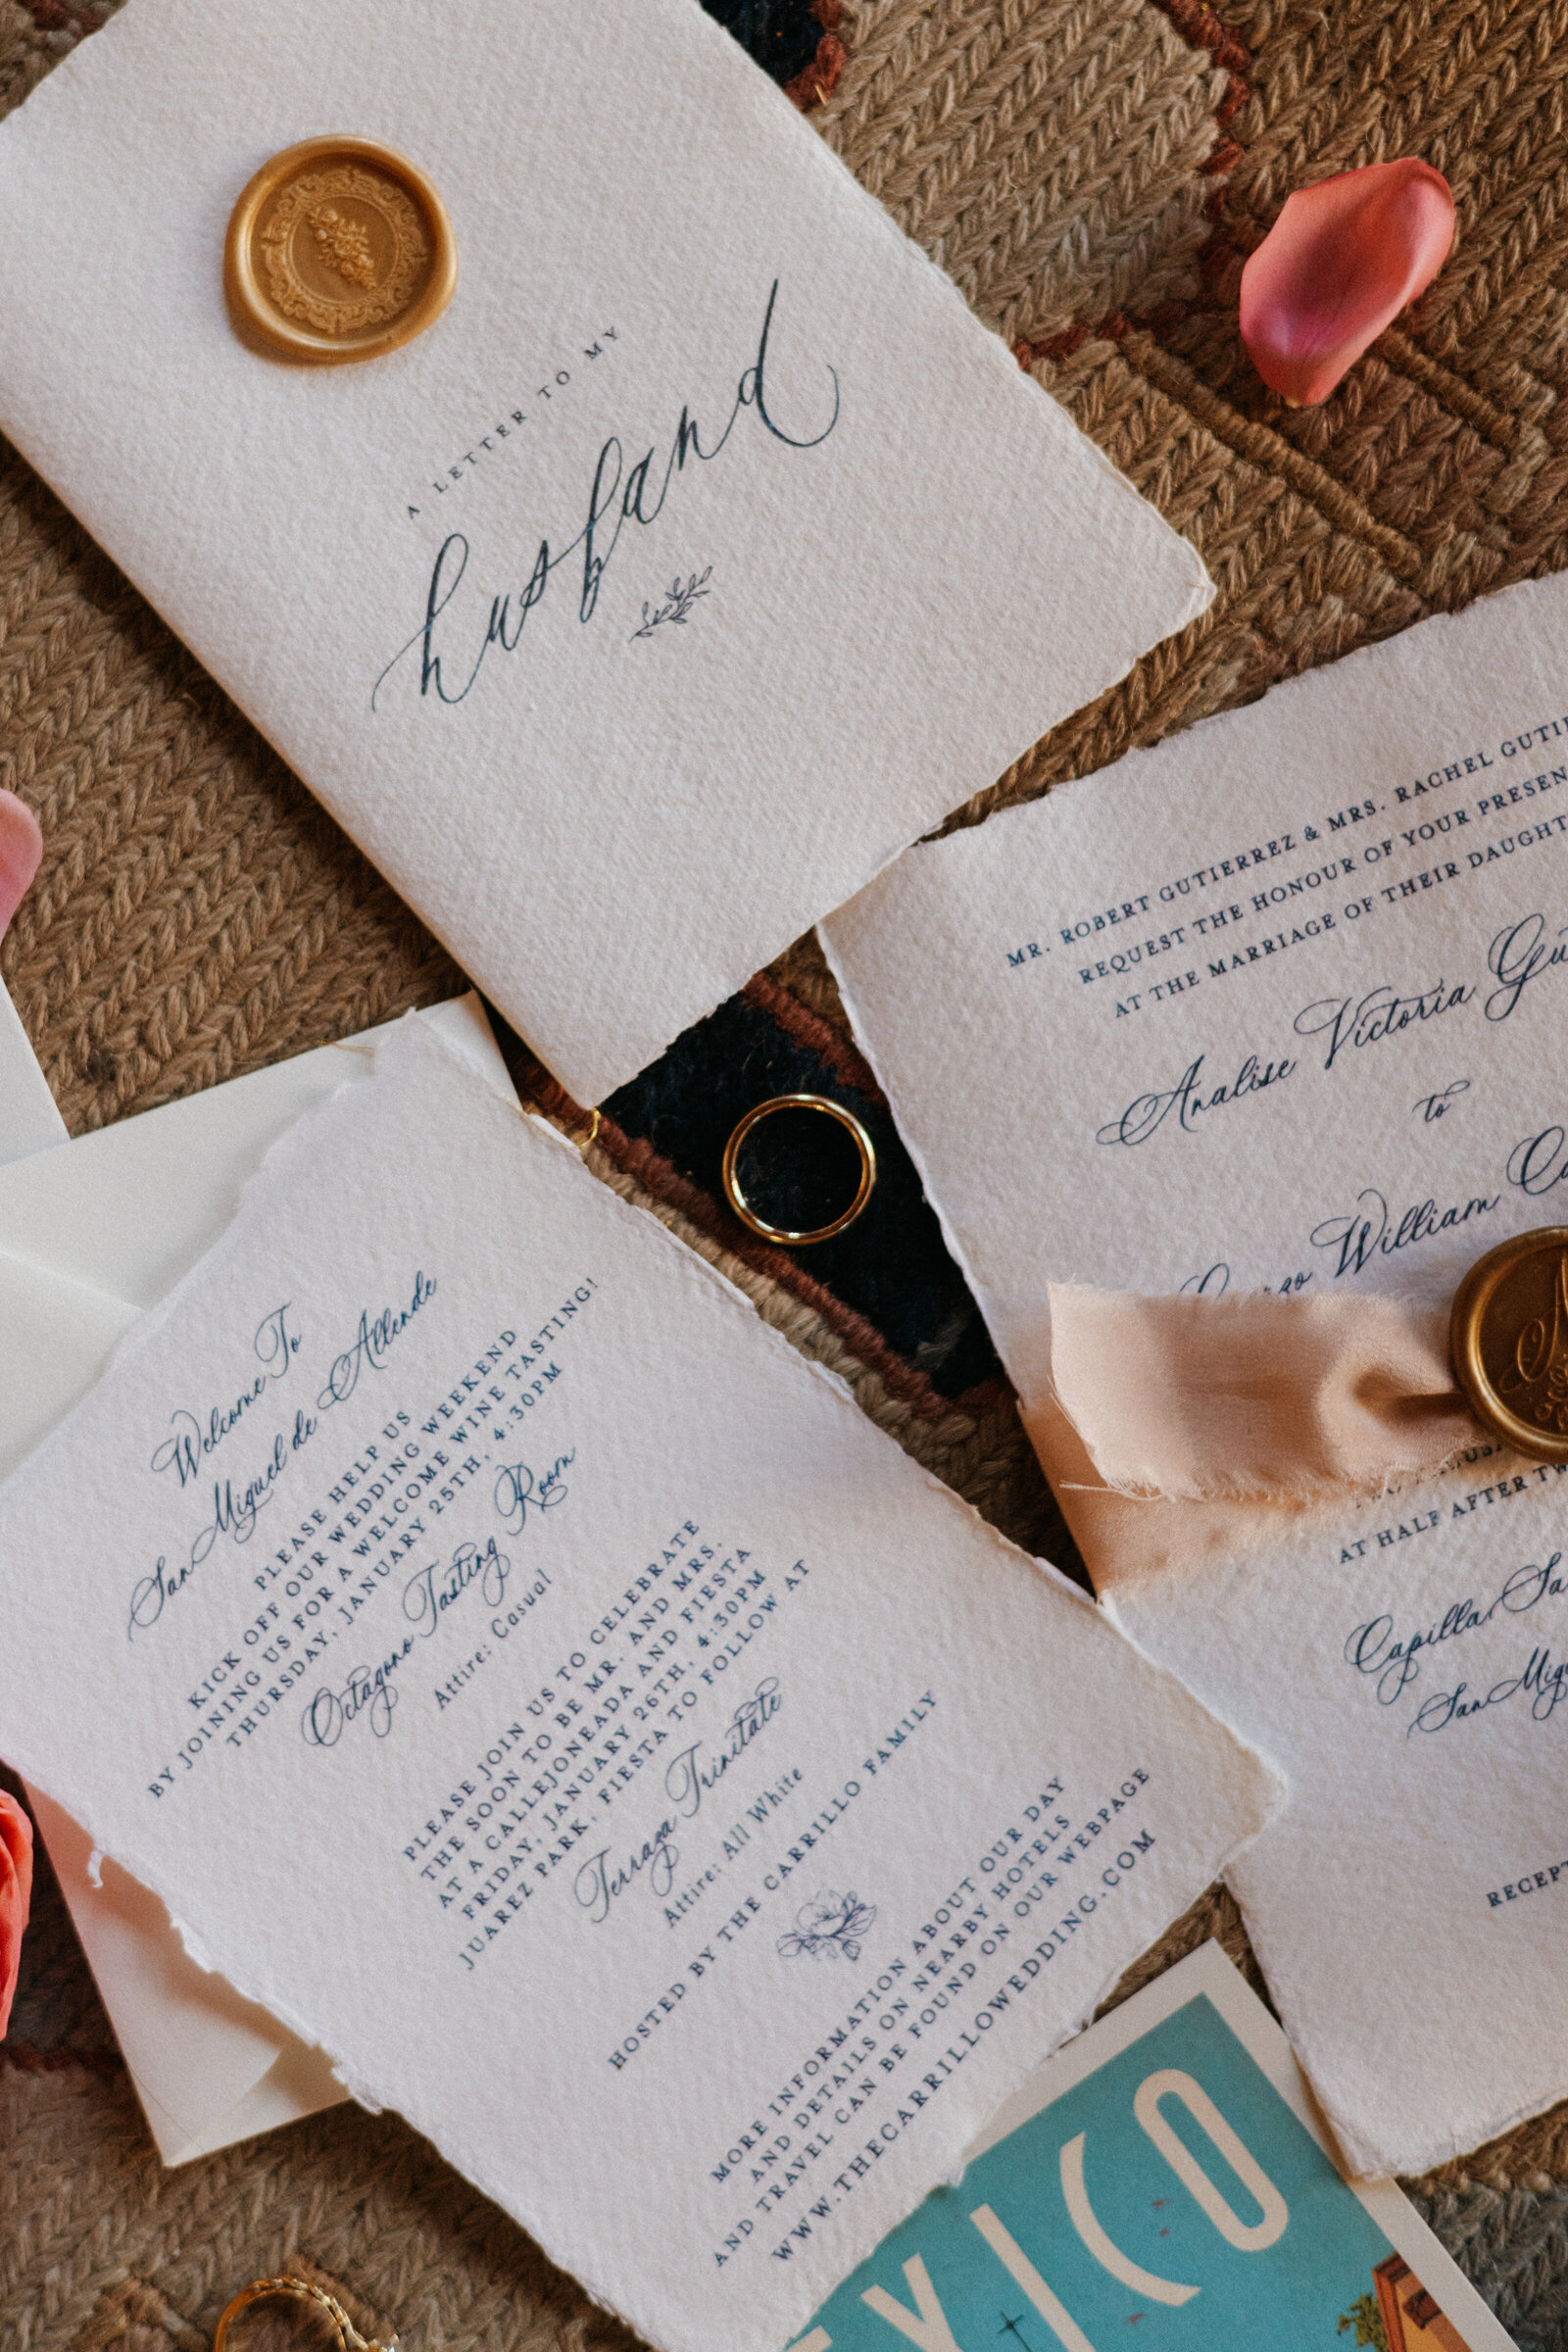 A LETTER TO MY
husband
MR. ROBERT GUTIERREZ & MRS. RACHEL
REQUEST THE HONOUR OF YOUR
AT THE MARRIAGE OF THEIR
Analise Victoria
to
William
AT HALF AFTER
Capilla
San
Welcome To
San Miguel de Allende
PLEASE HELP US
KICK OFF OUR WEDDING WEEKEND
BY JOINING US FOR A WELCOME WINE TASTING!
THURSDAY, JANUARY 25TH, 4:30PM
Octagono Tasting Room
Attire: Casual
PLEASE JOIN US TO CELEBRATE
THE SOON TO BE MR. AND MRS.
AT A CALLEJONEADA AND FIESTA
FRIDAY, JANUARY 26TH, 4:30PM
JUAREZ PARK, FIESTA TO FOLLOW AT
Terraza Trinitate
Attire: All White
HOSTED BY THE CARRILLO FAMILY
MORE INFORMATION ABOUT OUR DAY
AND DETAILS ON NEARBY HOTELS
AND TRAVEL CAN BE FOUND ON OUR WEBPAGE
WWW.THECARRILLOWEDDING.COM
XICO